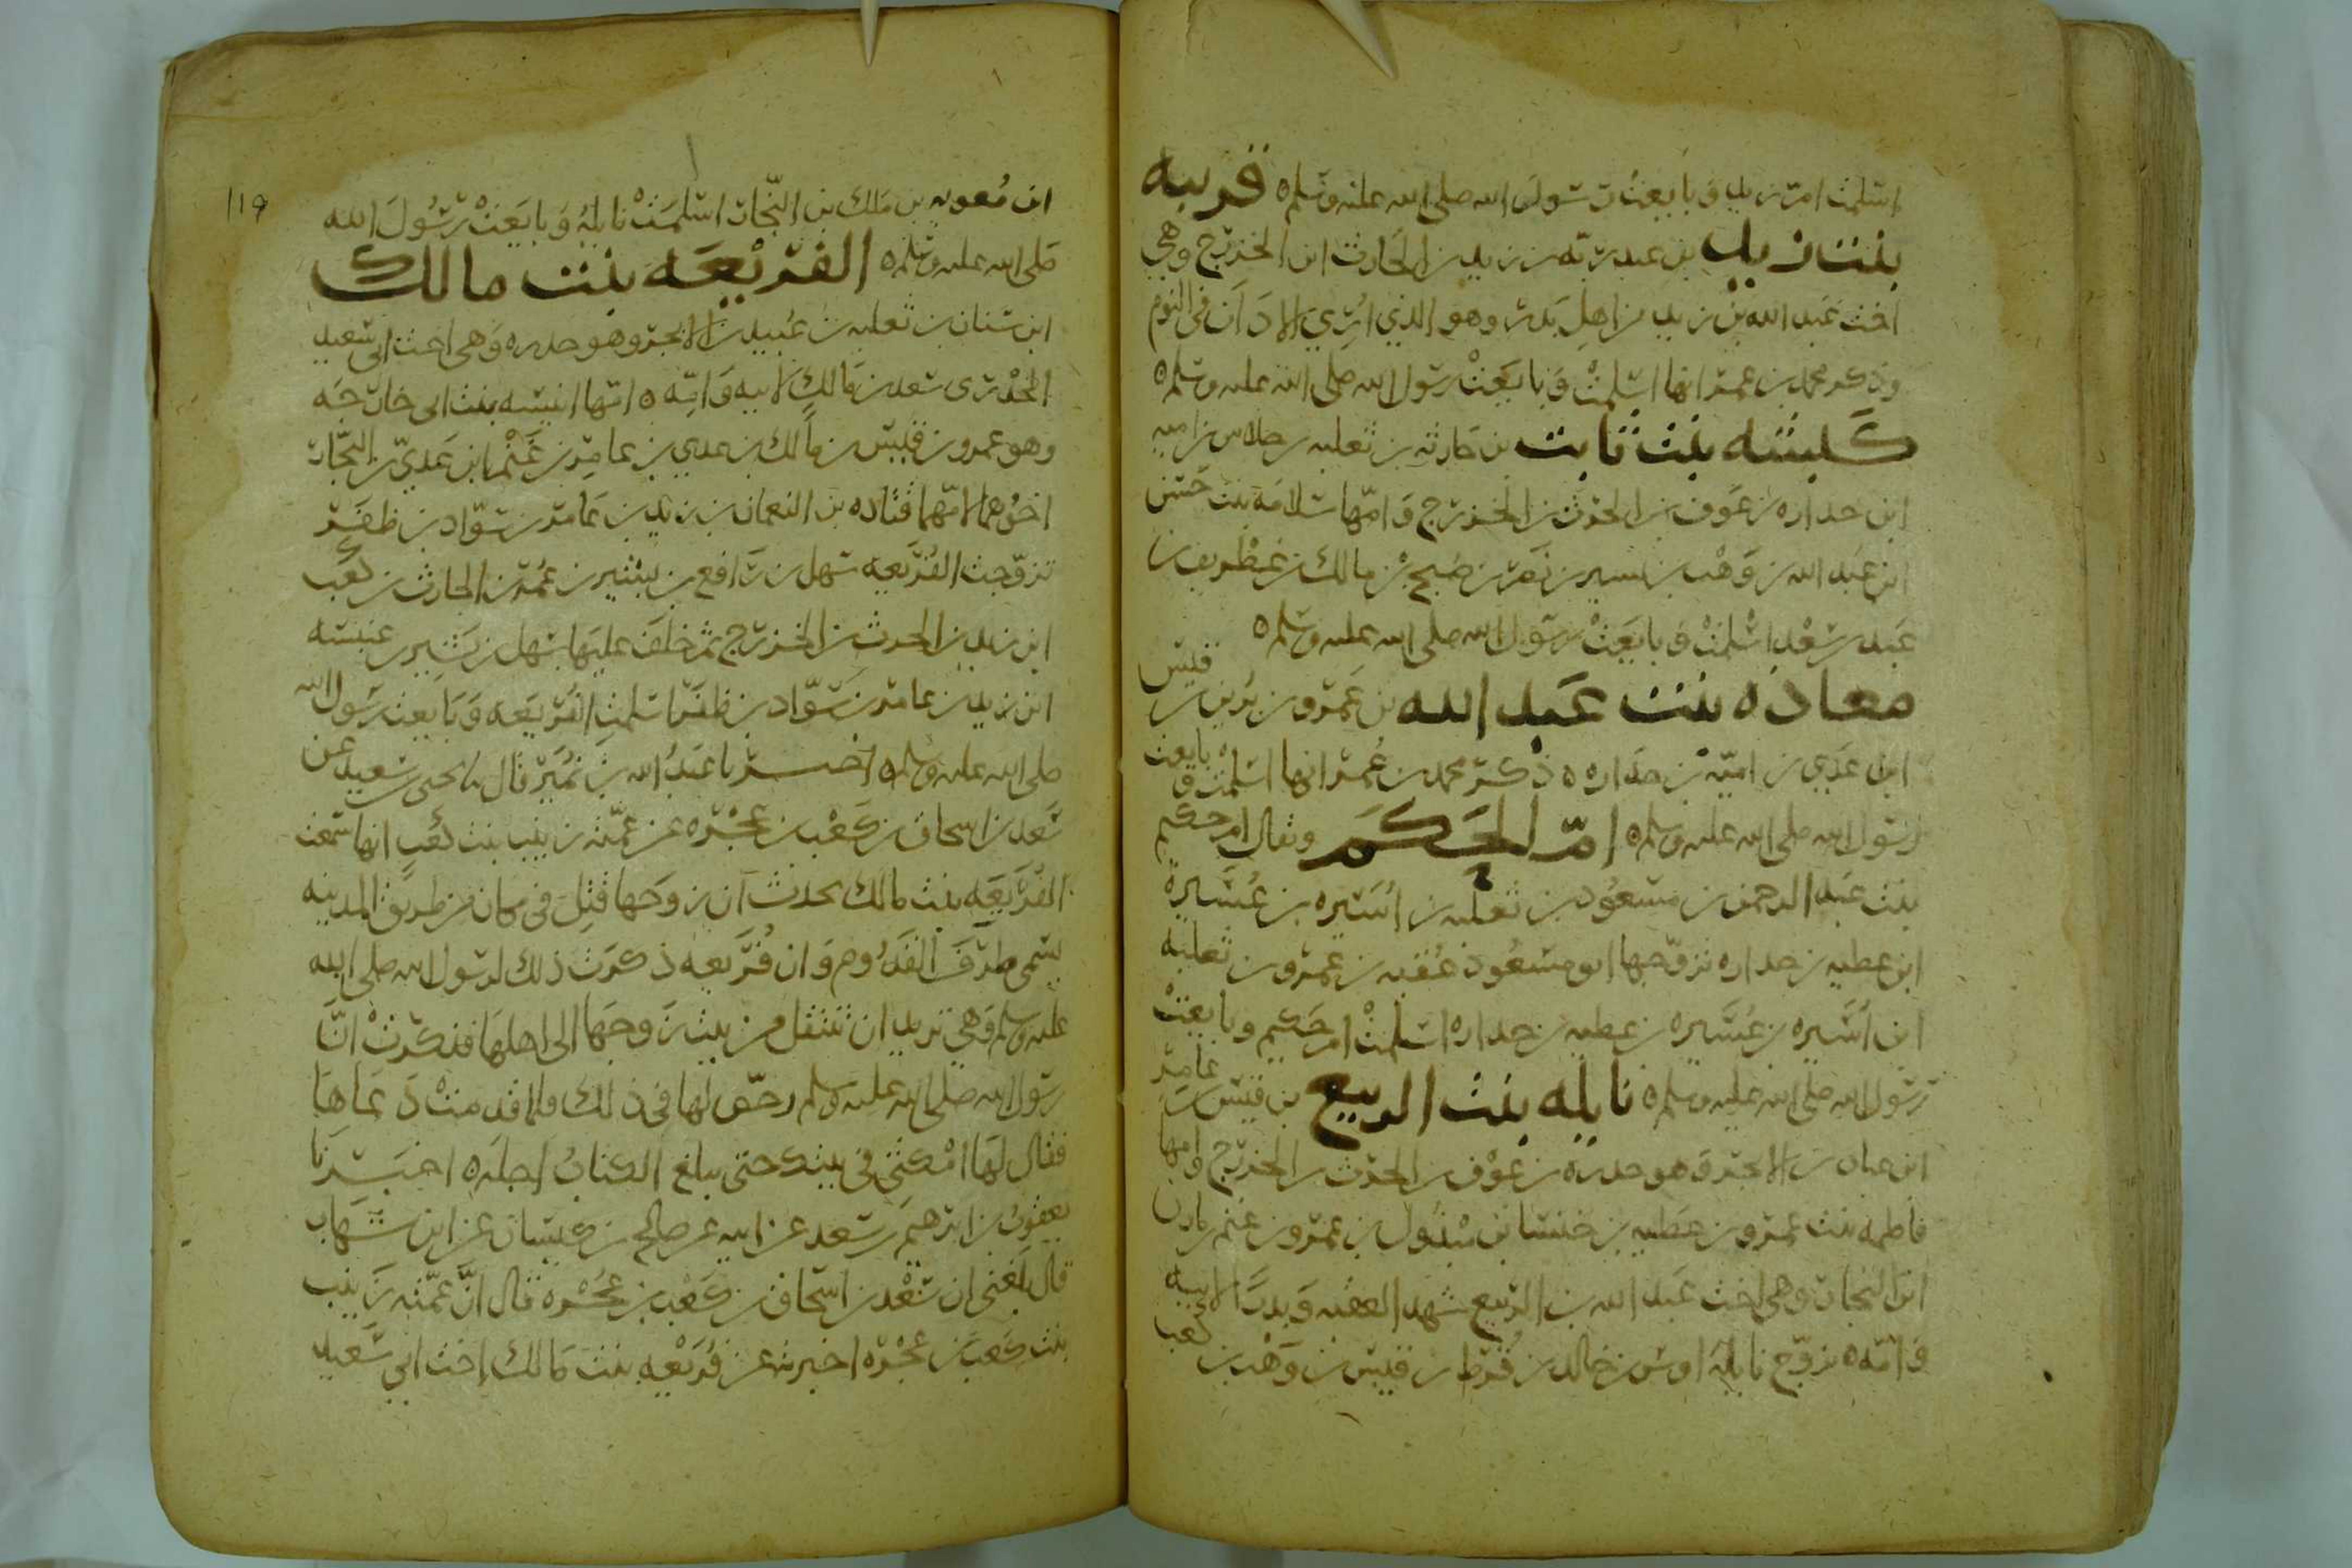 اسلمت ام زيد وبايعت رسول الله صلى الله عليه وسلم ٥ قريبه
بنت زيد بن عبد ربه بن زيد بن الحارث ابن الخزرج وهي
اخت عبد الله بن زيد من اهل بدر وهو الذي اري الاذان في النوم
وذكر محمد بن عمر انها اسلمت وبايعت رسول الله صلى الله عليه وسلم ٥
كبشه بنت ثابت بن حارثه بن ثعلبه بن جلاس بن اميه
ابن جداره بن عوف بن الحرث بن الخزرج وامها سلامه بنت حسن
ابن عبد الله بن وهب بن بسير بن نصر بن صبح بن مالك بن غطريف بن
عبد سعد اسلمت وبايعت رسول الله صلى الله عليه وسلم ٥
معاذه بنت عبد الله بن عمرو بن بن قيس
ابن عدي بن اميه بن جداره ٥ ذكر محمد بن عمر انها اسلمت وبايعت
رسول الله صلى الله عليه وسلم ٥ ام الحكم ويقال ام حكم
بنت عبد الرحمن بن مسعود بن ثعلبه بن اسيره بن عسيره
ابن عطيه بن جداره تزوجها ابو مسعود عقبه بن عمرو بن ثعلبه
ابن اسيره بن عسيره بن عطيه بن جداره اسلمت ام حكيم وبايعت
رسول الله صلى الله عليه وسلم ٥ نايله بنت الربيع بن قيس بن عامر
ابن عباد بن الابجر وهو خدره بن عوف بن الحرث بن الخزرج وامها
فاطمه بنت عمرو بن عطيه بن خنسا بن مبذول بن عمرو بن غنم بن مازن
ابن النجار وهي اخت عبد الله بن الربيع شهد العقبه وبدرا لابيه
وامه ٥ تزوج نايله اوس بن خالد بن قرط بن قيس بن وهب بن كعب
١١٩
ابن معويه بن مالك بن النجار اسلمت نايله وبايعت رسول الله
صلى الله عليه وسلم ٥ الفريعه بنت مالك
ابن سنان بن ثعلبه بن عبيد بن الابجر وهو خدره وهي اخت ابي سعيد
الخدري سعد بن مالك لابيه وامه ٥ امها انيسه بنت ابي خارجه
وهو عمرو بن قيس بن مالك بن عدي بن عامر بن غنم ابن عدي بن النجار
اخوهما لامهما قتاده بن النعمان بن زيد بن عامر بن سواد بن ظفر
تزوجت الفريعه سهل بن رافع بن بشير بن عمر بن الحارث بن كعب
ابن زيد بن الحرث بن الخزرج ثم خلف عليها سهل بن بشير بن عنبسه
ابن زيد بن عامر بن سواد بن ظفر اسلمت الفريعه وبايعت رسول الله
صلى الله عليه وسلم ٥ اخبرنا عبد الله بن نمير قال نا يحيى بن سعيد عن
سعد بن اسحاق بن كعب بن عجره عن عمته زينب بنت كعب انها سمعت
الفريعه بنت مالك تحدث ان زوجها قتل في مكان من طريق المدينه
يسمى طرف القدوم وان فريعه ذكرت ذلك لرسول الله صلى الله
عليه وسلم وهي تريد ان تنتقل من بيت زوجها الى اهلها فذكرت ان
رسول الله صلى الله عليه وسلم رخص لها في ذلك فلما قدمت دعاها
فقال لها امكثي في بيتك حتى يبلغ الكتاب اجله ٥ اخبرنا
يعقوب بن ابرهيم بن سعد عن ابيه عن صالح بن كيسان عن ابن شهاب
قال بلغني ان سعد بن اسحاق بن كعب بن عجره قال ان عمته زينب
بنت كعب بن عجره اخبرته عن فريعه بنت مالك اخت ابي سعيد